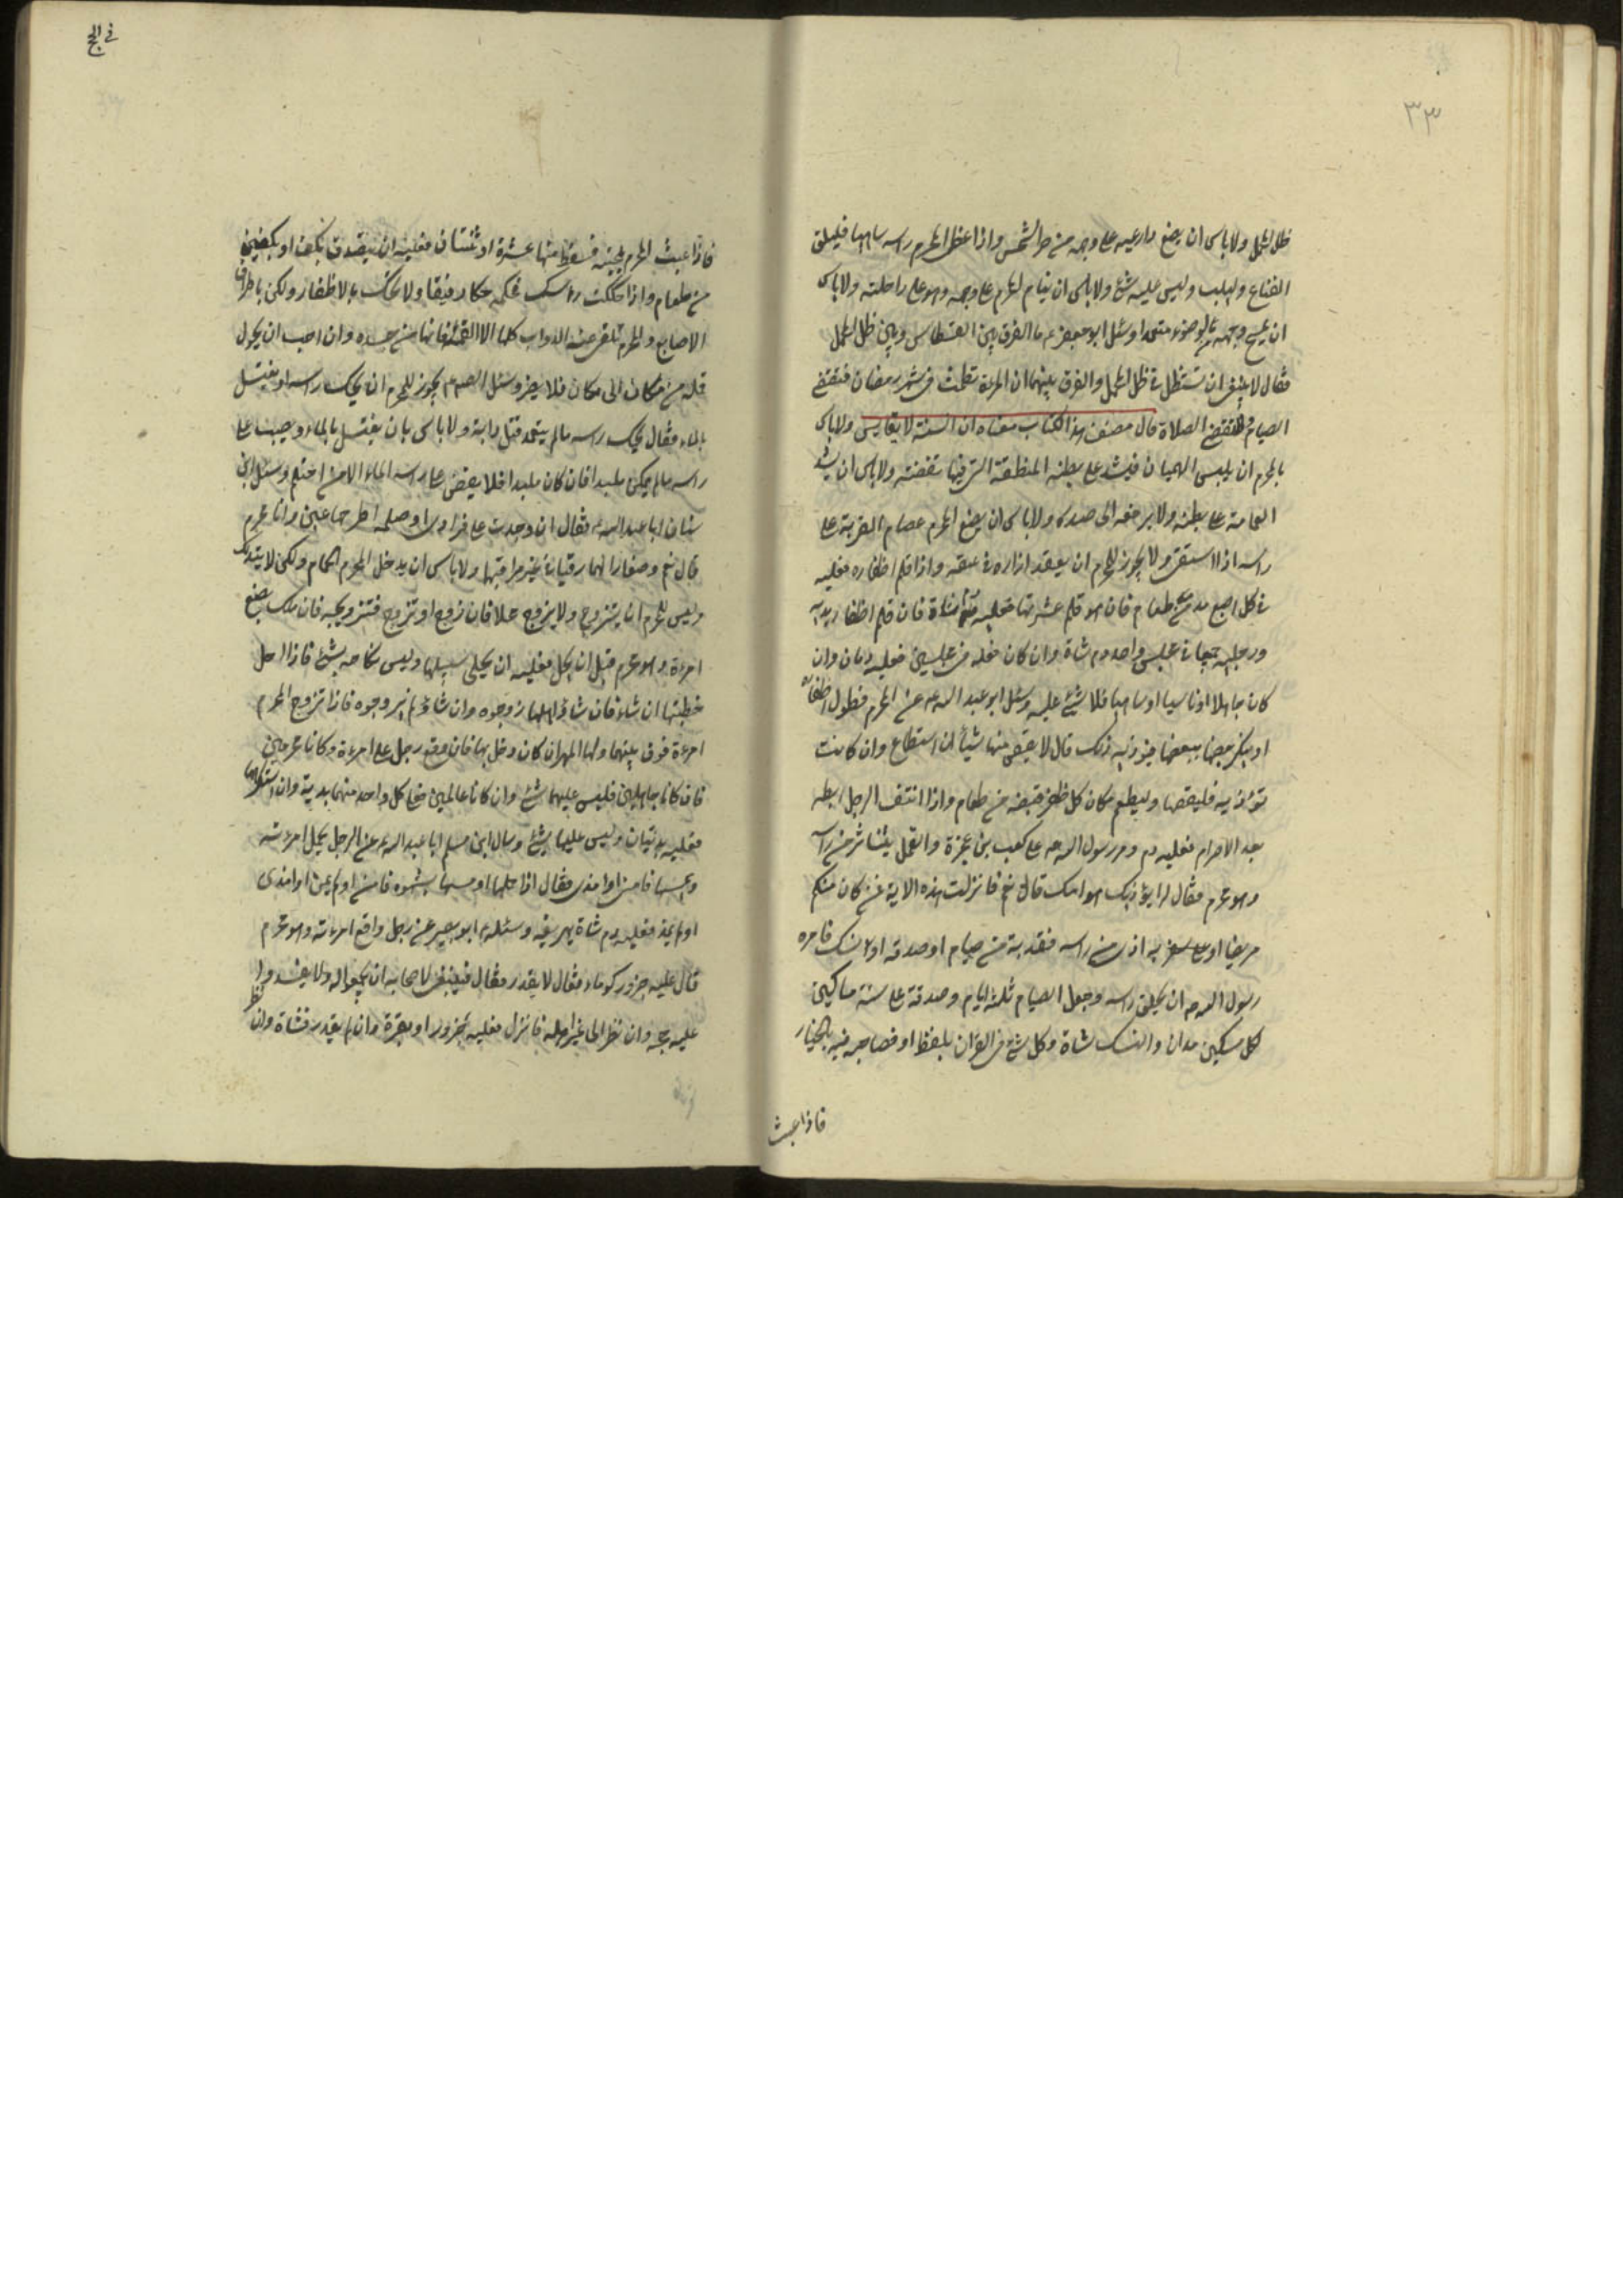 ٣٣
ظل المحمل ولا باس ان يضع ذراعيه على وجهه من حر الشمس واذا غطى المحرم راسه ساهيا فليلق
القناع ويلبب وليس عليه شئ ولا باس ان ينام المحرم على وجهه وهو على راحلته ولا باس
ان يمسح وجهه بالوضوء متعمدا وسئل ابو جعفر ع ما الفرق بين الفسطاس وبين ظل المحمل
فقال لا ينبغى ان تستظل فى ظل المحمل والفرق بينهما ان المرءة تطمث فى شهر رمضان فتقضى
الصيام ولا تقضى الصلاة قال مصنف هذا الكتاب معناه ان السنة لا يقايس ولا باس
بالمحرم ان يلبس الهميان فيشد على بطنه المنطقة التى فيها نفقته ولا باس ان يشد
العمامة على بطنه ولا يرفعه الى صدره ولا باس ان يضع المحرم عصام القربة على
راسه اذا استقى ولا يجوز للمحرم ان يعقد ازاره فى عنقه واذا قلم اظفاره فعليه
فى كل اصبع مد من طعام فان هو قلم عشرتها فعليه دم شاة فان قلم اظفار يديه
ورجليه جميعا فى مجلس واحد دم شاة وان كان فعله فى مجلسين فعليه دمان وان
كان جاهلا او ناسيا او ساهيا فلا شئ عليه وسئل ابو عبد الله ع عن المحرم فطول اظفاره
او ينكسر بعضها فيؤذيه ذلك قال لا يقص منها شيئا ان استطاع وان كانت
تؤذيه فليقصها وليطعم مكان كل ظفر قبضه من طعام واذا انتف الرجل ابطه
بعد الاحرام فعليه دم ومر رسول الله ص على كعب بن عجزة والقمل يتناثر من راسه
وهو محرم فقال له ايؤذيك هوامك قال نعم فانزلت هذه الاية فمن كان منكم
مريضا او به اذى من راسه ففدية من صيام او صدقه او نسك فامره
رسول الله ص ان يحلق راسه وجعل الصيام ثلثه ايام وصدقة على ستة مساكين
كل مسكين مدان والنسك شاة وكل شئ فى القران بلفظ او فصاحبه فيه بالخيار
فاذا عبث
فى الحج
فاذا عبث المحرم بلحيته فسقط منها عشرة او ثنتان فعليه ان يتصدق بكف او بكفين
من طعام واذا حككت راسك فحكه حكا رفيقا ولا تحك بالاظفار ولكن باطراف
الاصابع والمحرم تلقى عنه الدواب كلها الا القملة فانها من جسده وان احب ان يحول
قمله من مكان الى مكان فلا يضر وسئل الصم ع يجوز للمحرم ان يحك راسه او يغتسل
بالماء فقال يحك راسه مالم يتعمد قتل دابة ولا باس بان يغتسل بالماء ويصب على
راسه مالم يكن ملبدا فان كان ملبدا فلا يفض على راسه الماء الا من احتلم وسئل ابن
سنان ابا عبد الله ع فقال ان وجدت على قرادا او حلمه اطرحهما عنى وانا محرم
قال نعم وصغارا لهما رقيا فى غير مراقيها ولا باس ان يدخل المحرم الحمام ولكن لا يتدلك
وليس للمحرم ان يتزوج ولا يزوج محلا فان زوج او تزوج فتزويجه فان ملك بضع
امرءة وهو محرم قبل ان يحل فعليه ان يخلى سبيلها وليس نكاحه بشئ فاذا احل
خطبها ان شاء فان شاؤا اهلها زوجوه وان شاؤا لم يزوجوه فاذا تزوج المحرم
امرءة فرق بينهما ولها المهر ان كان دخل بها فان وقع رجل على امرءة وكانا محرمين
فان كانا جاهلين فليس عليهما شئ وان كانا عالمين فعلى كل واحد منهما بدنة وان استكرهها
فعليه بدنتان وليس عليها شئ وسال ابن مسلم ابا عبد الله ع عن الرجل يحمل امرءته
ويمسها فامنى او امذى فقال اذا حملها او مسها بشهوه فامنى او لم يمن او امذى
او لم يمذ فعليه دم شاة يهريقه وسئله ابو بصير عن رجل واقع امرءته وهو محرم
قال عليه جزور كوماء فقال لا يقدر فقال فينبغى لاصحابه ان يجمعوا له ولا يفسدوا
عليه حجه وان نظر الى غير اهله فانزل فعليه جزور او بقرة وان لم يقدر فشاة وان نظر